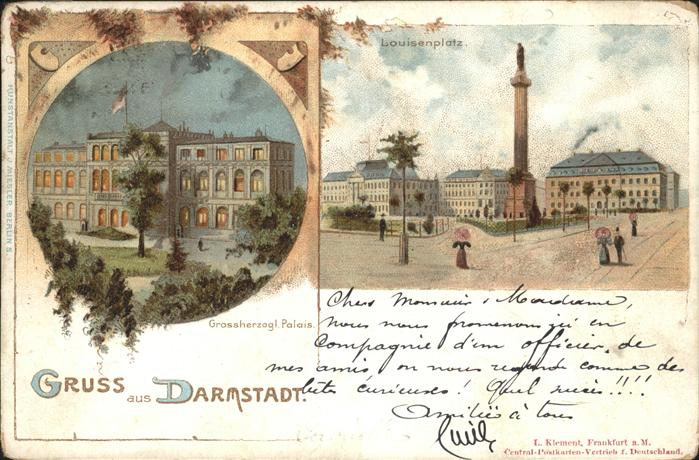 Louisenplatz.
KUNSTANSTALT J. MIESLER, BERLIN S.
Grossherzogl. Palais.
GRUSS aus DARMSTADT.
Chers Monsieur & Madame,
nous nous promenons ici en
compagnie d'un officier de
mes amis on nous regarde comme des
bêtes curieuses! Quel succès!!!!
Amitiés à tous
Emile
L. Klement, Frankfurt a. M.
Central-Postkarten-Vertrieb f. Deutschland.